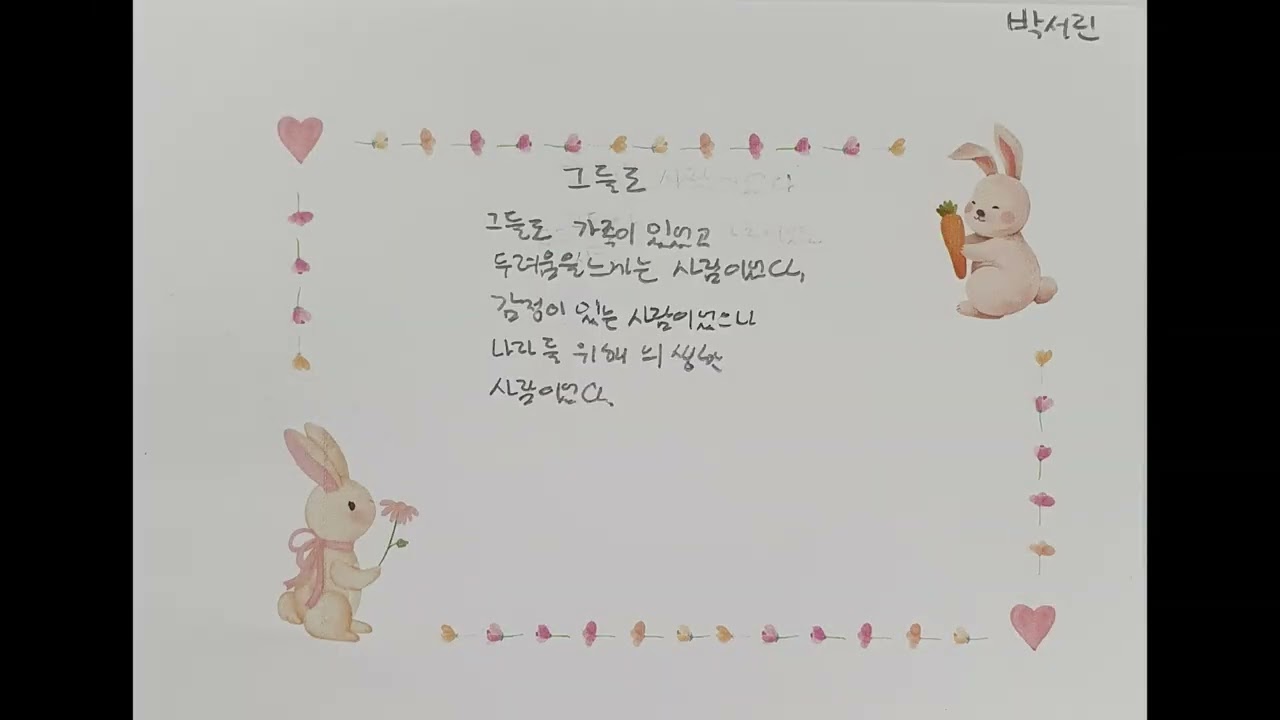 박서린
그들도
그들도 가족이 있었고
두려움을느끼는 사람이었다.
감정이 있는 사람이었으나
나라를 위해 희생한
사람이었다.